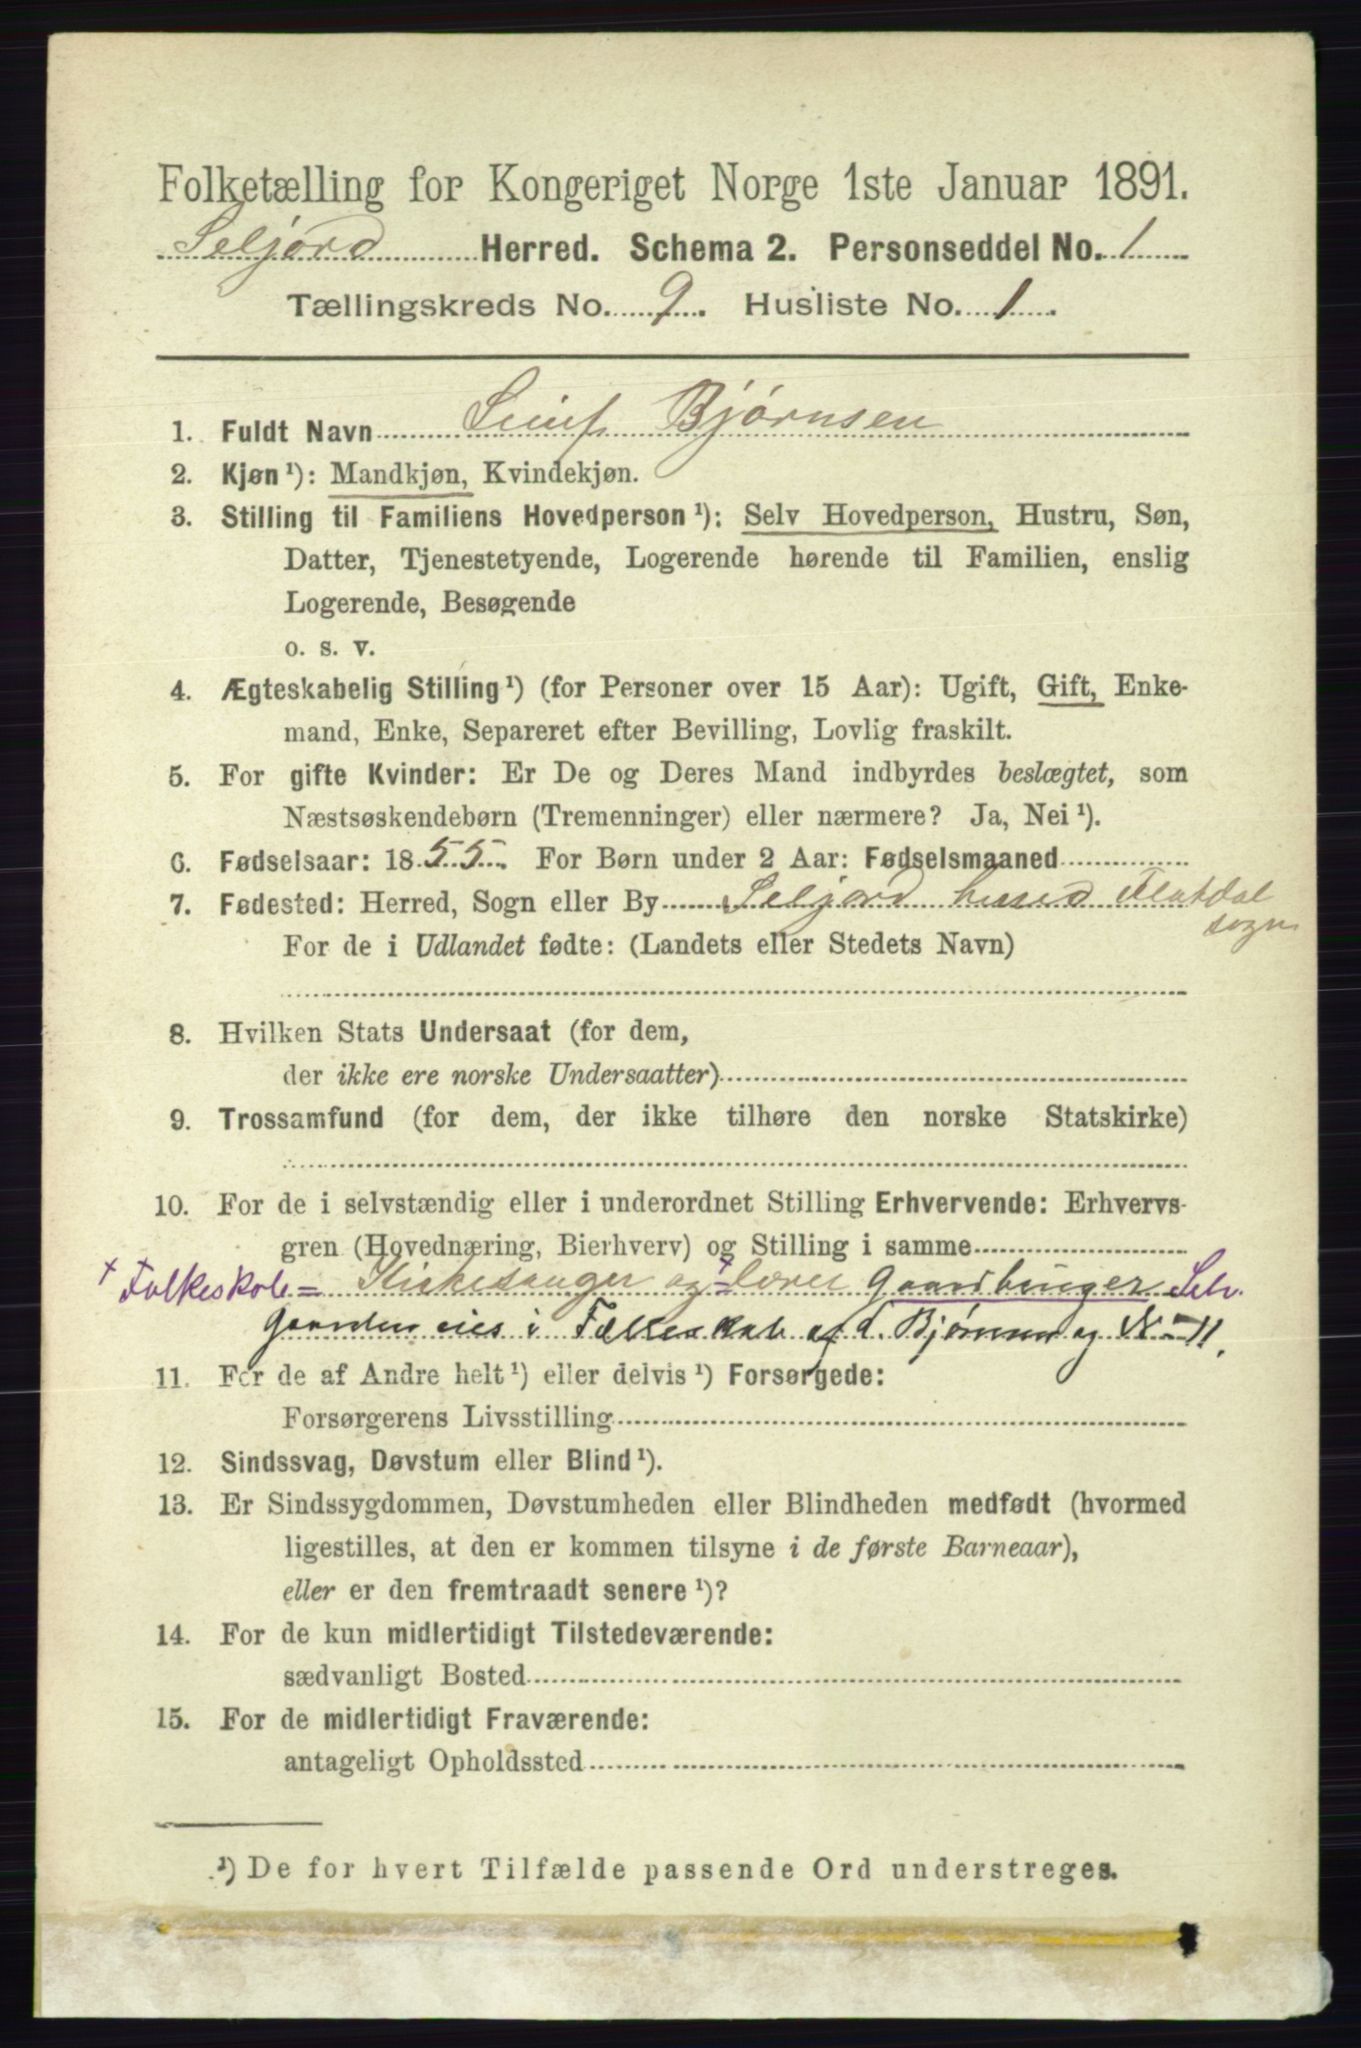 Folketælling for Kongeriget Norge 1ste Januar 1891.
Seljord Herred. Schema 2. Personseddel No. 1
Tællingskreds No. 9. Husliste No. 1.
1. Fuldt Navn Bjørnsen
2. Kjøn ¹): Mandkjøn, Kvindekjøn.
3. Stilling til Familiens Hovedperson ¹): Selv Hovedperson, Hustru, Søn,
Datter, Tjenestetyende, Logerende hørende til Familien, enslig
Logerende, Besøgende
o. s. v.
4. Ægteskabelig Stilling ¹) (for Personer over 15 Aar): Ugift, Gift, Enke-
mand, Enke, Separeret efter Bevilling, Lovlig fraskilt.
5. For gifte Kvinder: Er De og Deres Mand indbyrdes beslægtet, som
Næstsøskendebørn (Tremenninger) eller nærmere? Ja, Nei ¹).
6. Fødselsaar: 1855. For Børn under 2 Aar: Fødselsmaaned
7. Fødested: Herred, Sogn eller By Seljord herred Flatdal
sogn
For de i Udlandet fødte: (Landets eller Stedets Navn)
8. Hvilken Stats Undersaat (for dem,
der ikke ere norske Undersaatter)
9. Trossamfund (for dem, der ikke tilhøre den norske Statskirke)
10. For de i selvstændig eller i underordnet Stilling Erhvervende: Erhvervs-
gren (Hovednæring, Bierhverv) og Stilling i samme
+ Folkeskole= Kirkesanger og + lærer Gaardbruger Selv.
Gaarden eies i Fælleskab af d. Bjørnsen og N-11.
11. For de af Andre helt ¹) eller delvis ¹) Forsørgede:
Forsørgerens Livsstilling
12. Sindssvag, Døvstum eller Blind ¹).
13. Er Sindssygdommen, Døvstumheden eller Blindheden medfødt (hvormed
ligestilles, at den er kommen tilsyne i de første Barneaar),
eller er den fremtraadt senere ¹)?
14. For de kun midlertidigt Tilstedeværende:
sædvanligt Bosted
15. For de midlertidigt Fraværende:
antageligt Opholdssted
¹) De for hvert Tilfælde passende Ord understreges.